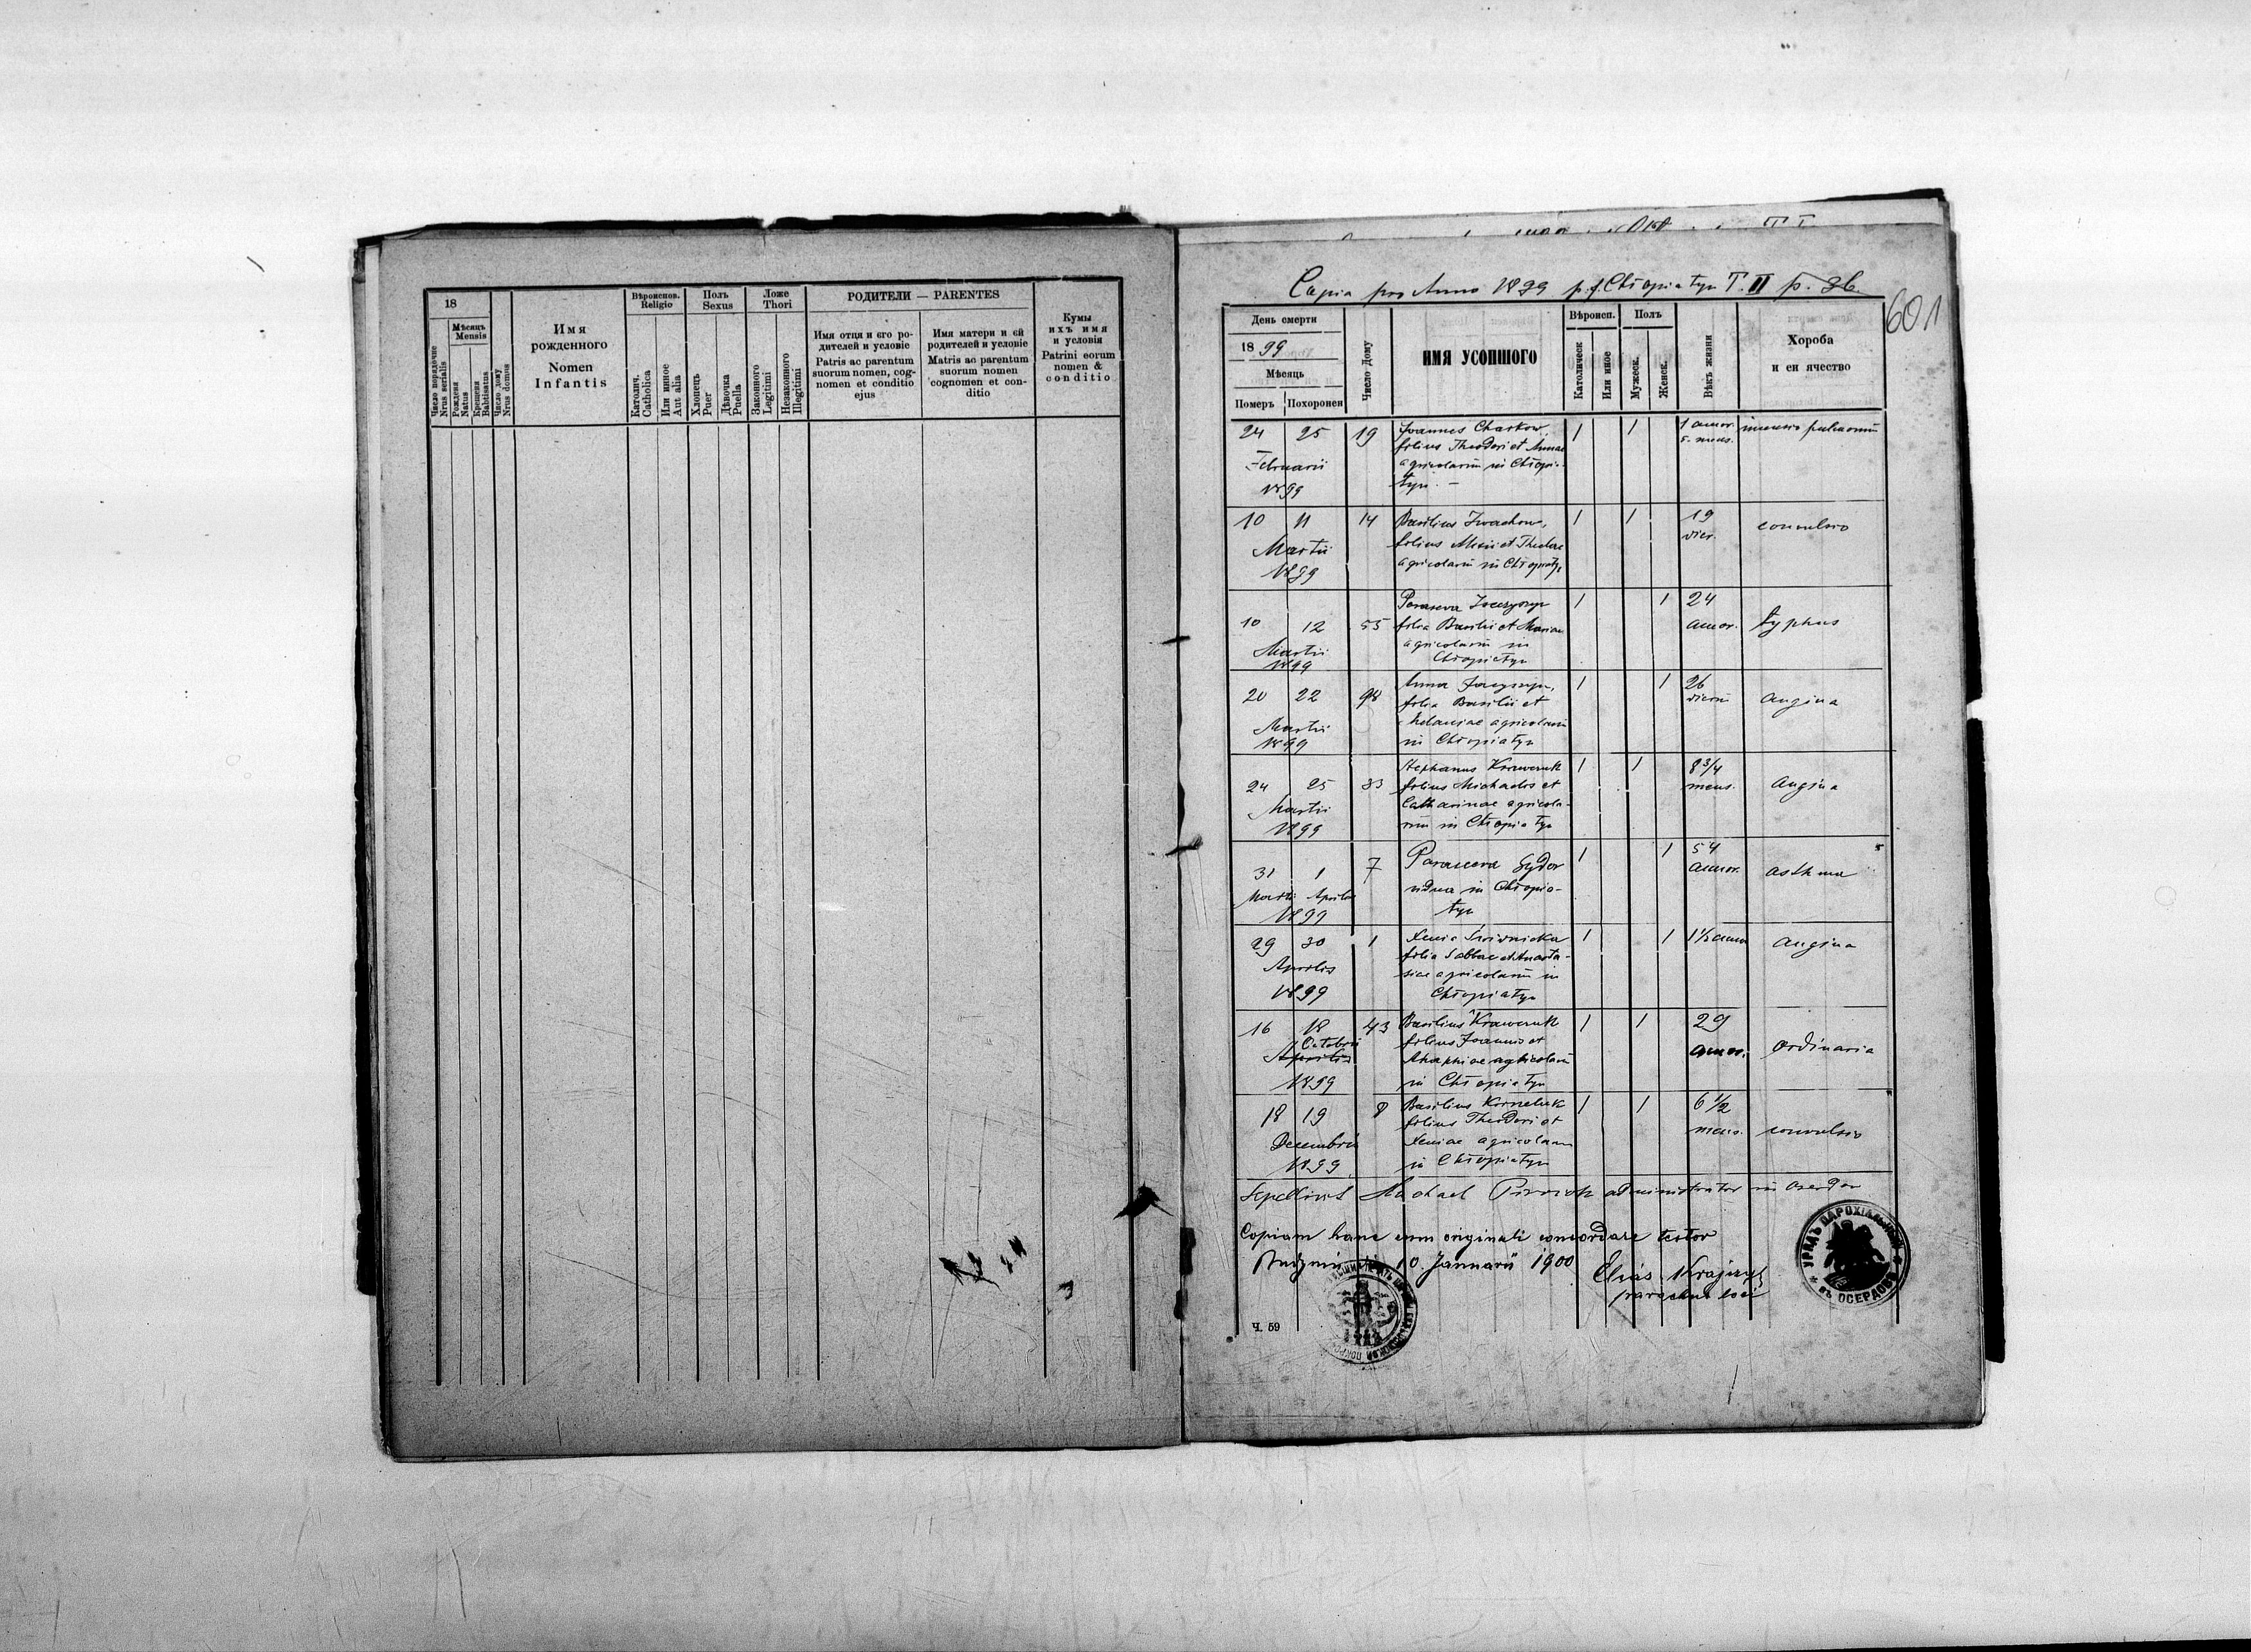 18
Число порядочне
Nrus serialis
Мѣсяцъ
Mensis
Рождения
Natus
Крещения
Babtisatus
Число дому
Nrus domus
Имя
рожденного
Nomen
Infantis
Вѣроиспов.
Religio
Католич.
Catholica
Или инное
Aut alia
Полъ
Sexus
Хлопець
Puer
Дѣвочка
Puella
Ложе
Thori
Законного
Legitimi
Незаконного
Illegitimi
РОДИТЕЛИ — PARENTES
Имя отця и єго ро-
дителей и условіе
Patris ac parentum
suorum nomen, cog-
nomen et conditio
ejus
Имя матери и єй
родителей и условіе
Matris ac parentum
suorum nomen
cognomen et con-
ditio
Кумы
ихъ имя
и условія
Patrini eorum
nomen &
conditio
Copia pro Anno 1899 p. f. Chłopiatyn T. II p.
601
День смерти
1899
Мѣсяць
Померъ
Похоронен
Число Дому
ИМЯ УСОПШОГО
Вѣроисп.
Католическ
Или иное
Полъ
Мужеск.
Женск.
Вѣкъ жизни
Хороба
и еи ячество
24 25 19 Joannes Charkow, 1 1 1 annor. pulmonum
filius Theodori et Annae 5. mens.
Februarii agricolarum in Chłopia-
1899 tyn. —
10 11 14 Basilius Iwachow, 1 1 19 convulsio
Martii filius Alexii et dier.
1899 agricolarum in Chłopiatyn
10 12 55 Parascева 1 1 24 typhus
filia Basilii et Mariae annor.
Martii agricolarum in
1899 Chłopiatyn
20 22 98 Anna 1 1 26 angina
filia Basilii et dierum
Martii Melaniae agricolarum
1899 in Chłopiatyn
24 25 33 Stephanus Krawczuk 1 1 8 3/4 angina
filius Michaelis et mens.
Martii Catharinae agricola-
1899 rum in Chłopiatyn
31 1 7 Parasceva Sydor 1 1 54 asthma
Martii Aprilis vidua in Chłopia- annor.
1899 tyn
29 30 1 Xenia 1 1 1½ anni angina
Aprilis filia Sabbae et Anasta-
siae agricolarum in
1899 Chłopiatyn
16 18 43 Basilius Krawczuk 1 1 29 ordinaria
Octobris filius Joannis et annor.
Aprilis Ahaphiae agricolarum
1899 in Chłopiatyn
18 19 8 Basilius Korneluk 1 1 6 1/2 convulsio
filius Theodori et mens.
Decembris Xeniae agricolarum
1899 in Chłopiatyn
Sepelivit Michael administrator in Oserdow
Copiam hanc cum originali concordare testor
10. Januarii 1900
Elias Krajczyk
parochus loci
УРЯДЪ ПАРОХІАЛЬНЫЙ
въ ОСЕРДОВѢ
Ч. 59